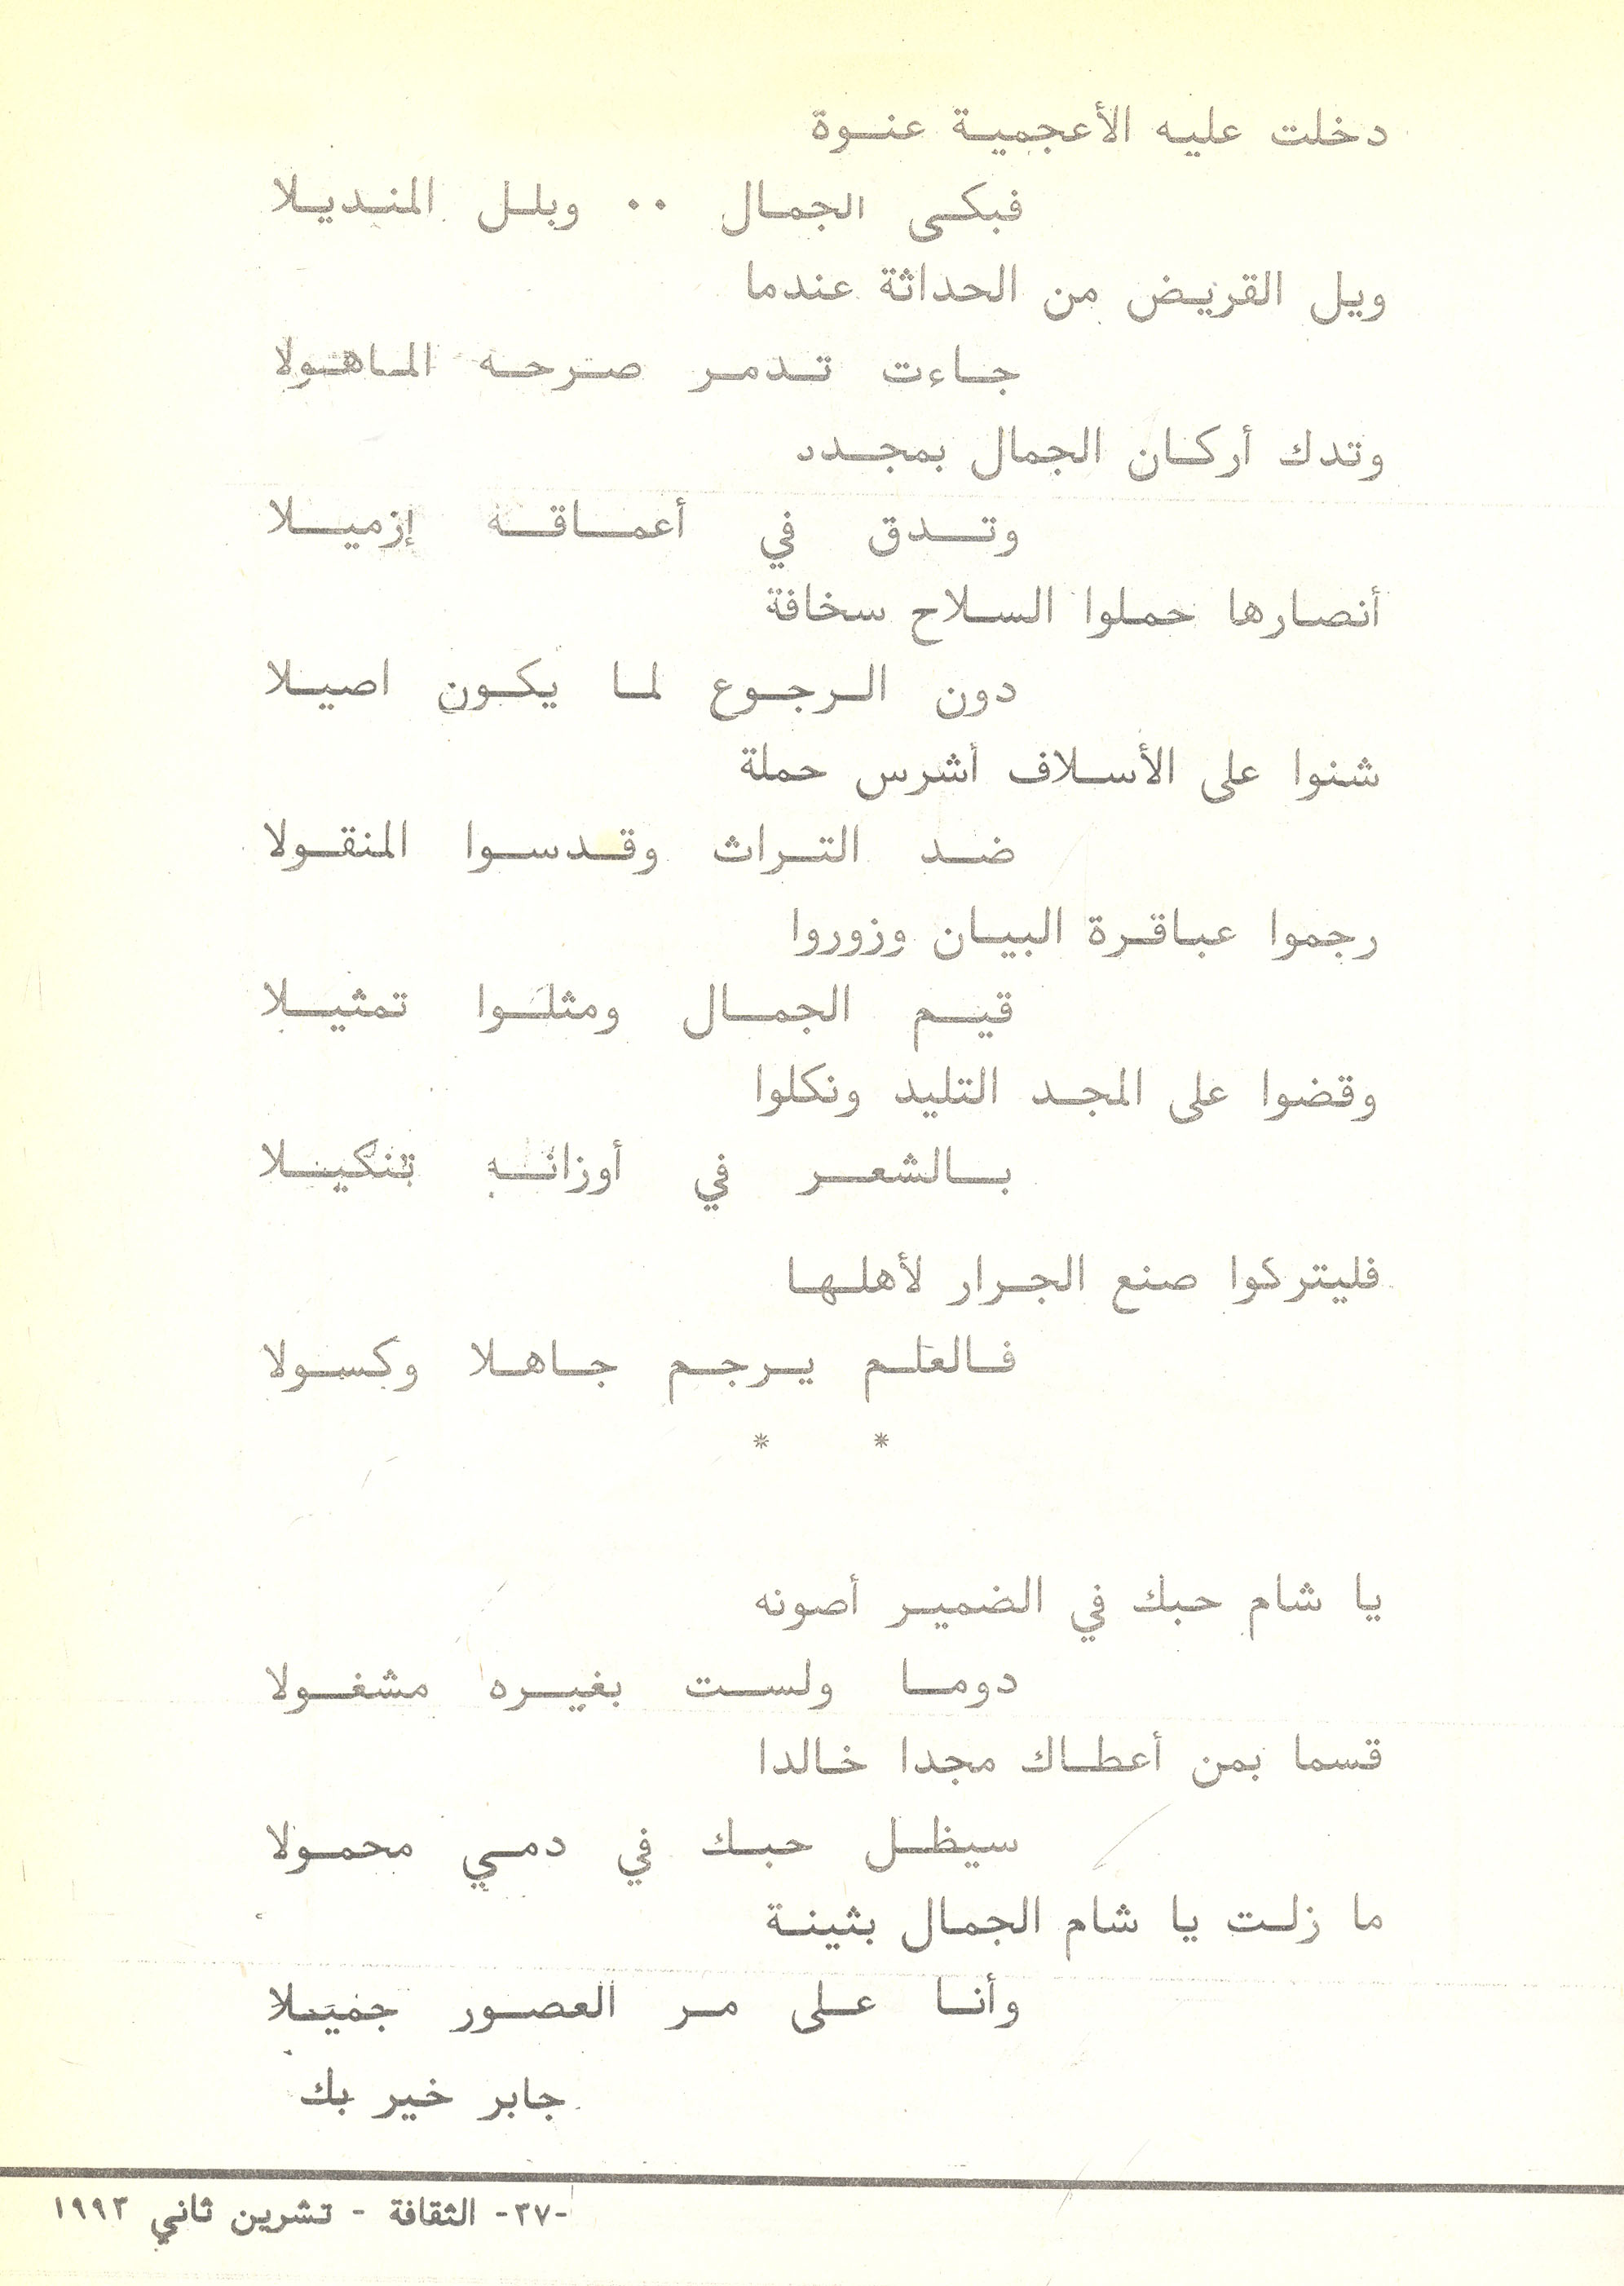 دخلت عليه الأعجمية عنوة
فبكى الجمال ٠٠ وبلل المنديلا
ويل القريض من الحداثة عندما
جاءت تدمر صرحه الماهولا
وتدك أركان الجمال بمجدد
وتدق في أعماقه إزميلا
أنصارها حملوا السلاح سخافة
دون الرجوع لما يكون اصيلا
شنوا على الأسلاف أشرس حملة
ضد التراث وقدسوا المنقولا
رجموا عباقرة البيان وزوروا
قيم الجمال ومثلوا تمثيلا
وقضوا على المجد التليد ونكلوا
بالشعر في أوزانه تنكيلا
فليتركوا صنع الجرار لأهلها
فالعلم يرجم جاهلا وكسولا
* *
يا شام حبك في الضمير أصونه
دوما ولست بغيره مشغولا
قسما بمن أعطاك مجدا خالدا
سيظل حبك في دمي محمولا
ما زلت يا شام الجمال بثينة
وأنا على مر العصور جميلا
جابر خير بك
-٣٧- الثقافة - تشرين ثاني ١٩٩٣